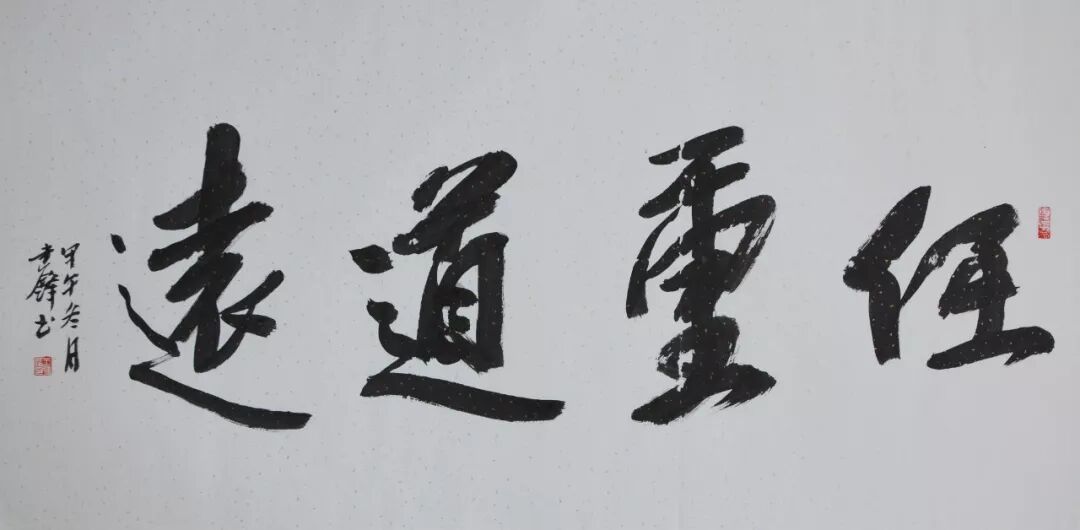 任重道遠
甲午冬月
志鋒书